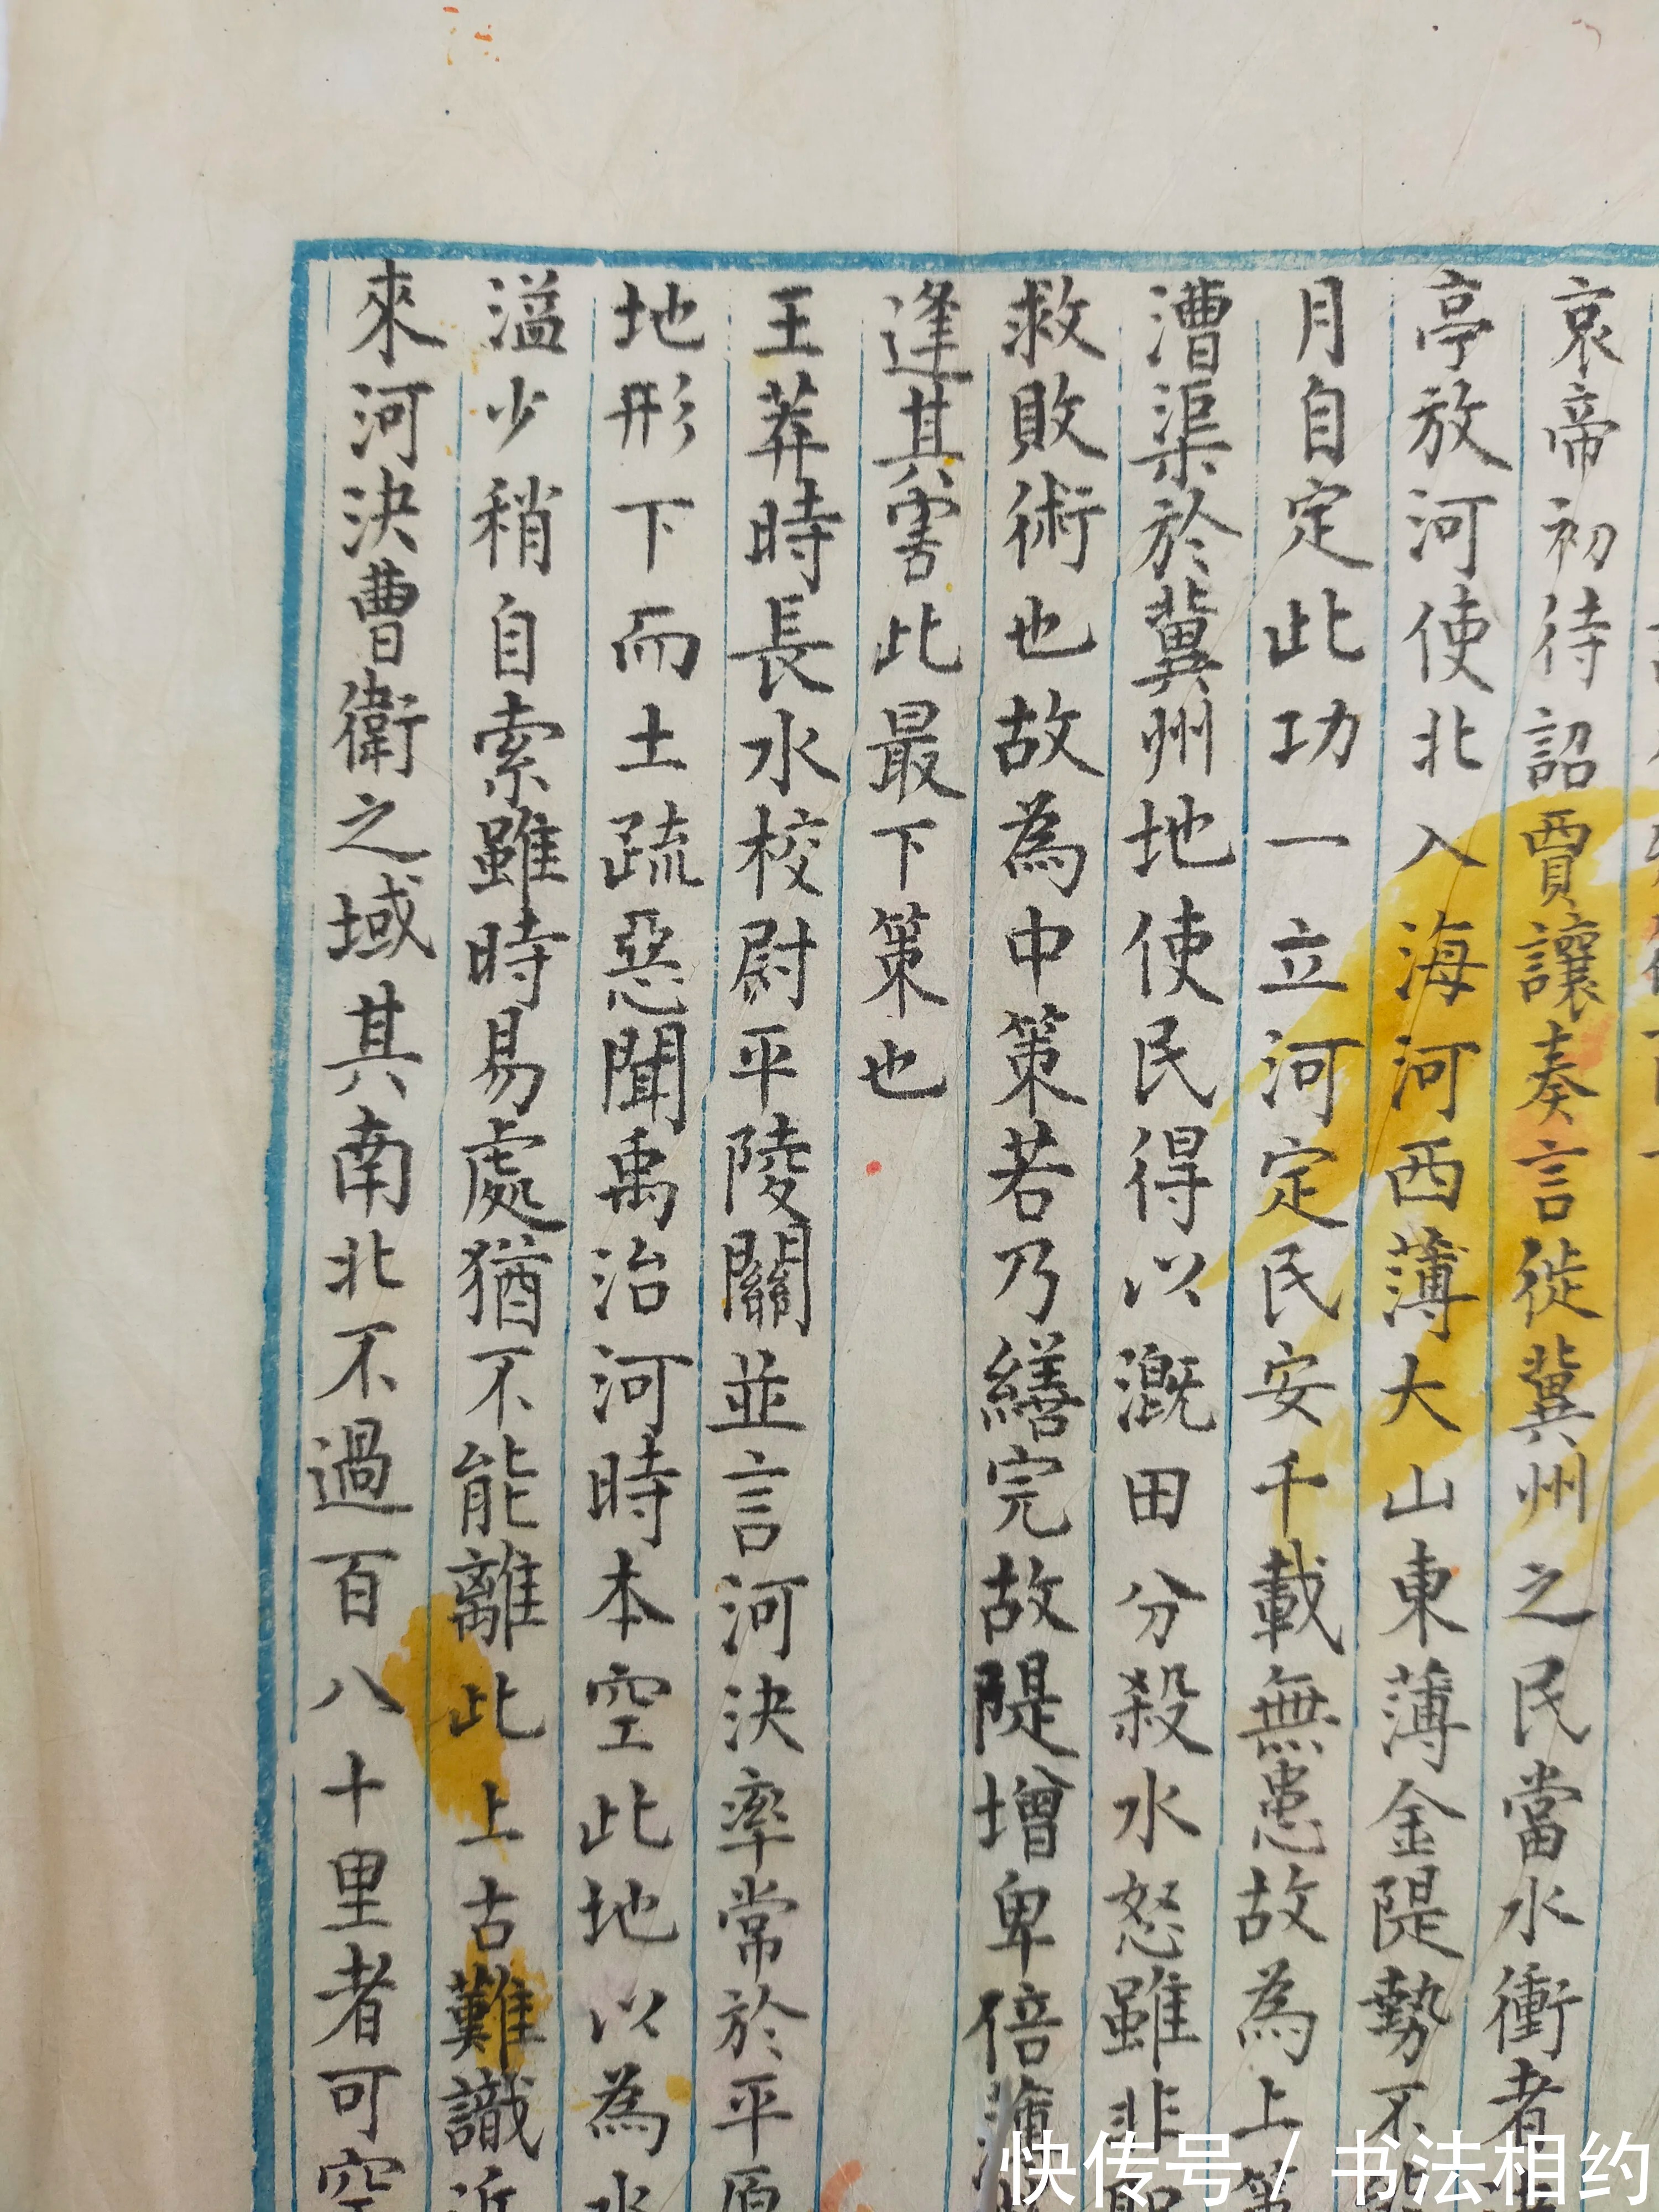 哀帝初待詔賈讓奏言徙冀州之民當水衝者
亭放河使北入海河西薄大山東薄金隄勢不
月自定此功一立河定民安千載無患故為上策
漕渠於冀州地使民得以溉田分殺水怒雖非
救敗術也故為中策若乃繕完故隄增卑倍薄
逢其害此最下策也
王莽時長水校尉平陵關並言河決率常於平原
地形下而土疏惡聞禹治河時本空此地以為水
溢少稍自索雖時易處猶不能離此上古難識近
來河決曹衛之域其南北不過百八十里者可空
快传号/书法相约